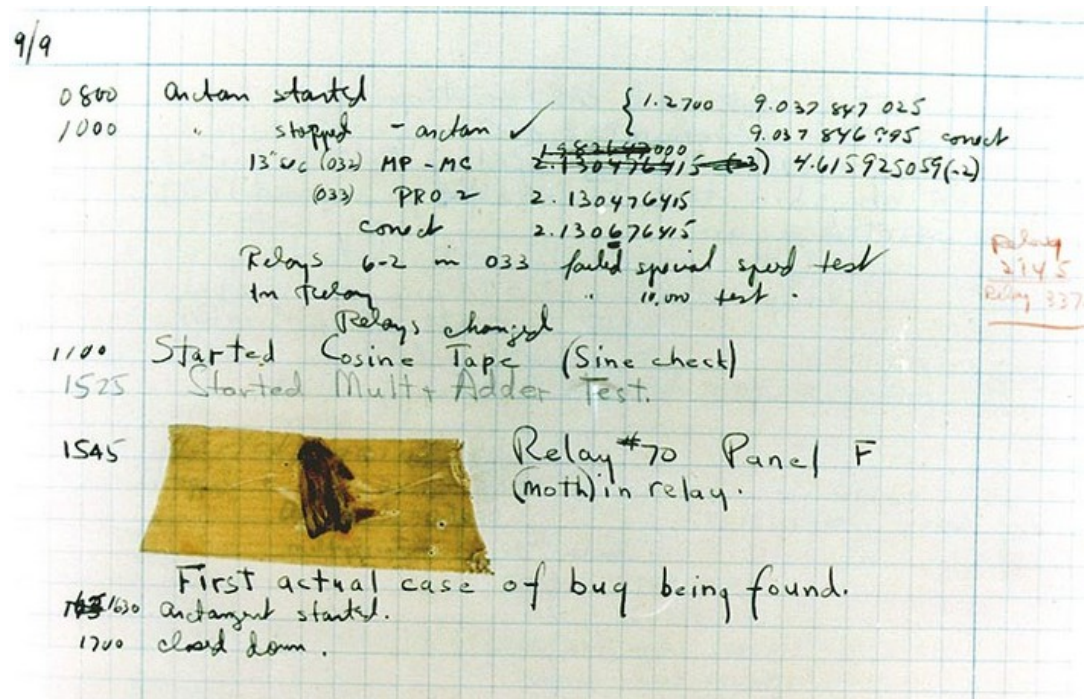 9/9
0800 arctan started { 1.2700 9.037 847 025
1000 " stopped - arctan ✓ 9.037 846 995 correct
13"sec (032) MP - MC 2.130476415 (-3) 4.615925059(-2)
(033) PRO 2 2.130476415
correct 2.130676415
Relays 6-2 in 033 failed special speed test
In Relay " 10.000 test .
Relay
2145
Relay 337
Relays changed
1100 Started Cosine Tape (Sine check)
1525 Started Mult + Adder Test.
1545 Relay #70 Panel F
(moth) in relay.
First actual case of bug being found.
1630 arctangent started.
1700 closed down.